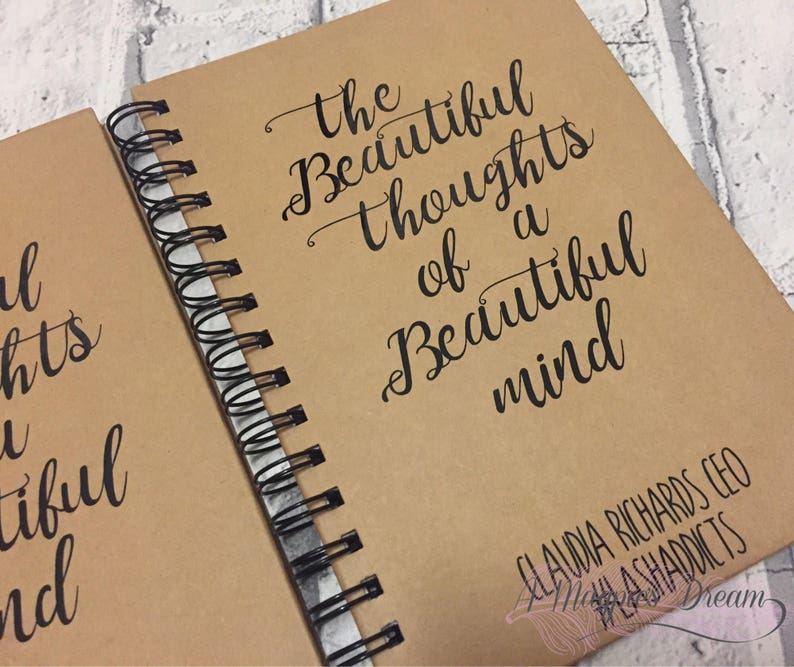 ul
hts
a
tiful
nd
the
Beautiful
thoughts
of a
Beautiful
mind
CLAUDIA RICHARDS CEO
#LASHADDICTS
A Magpie's Dream